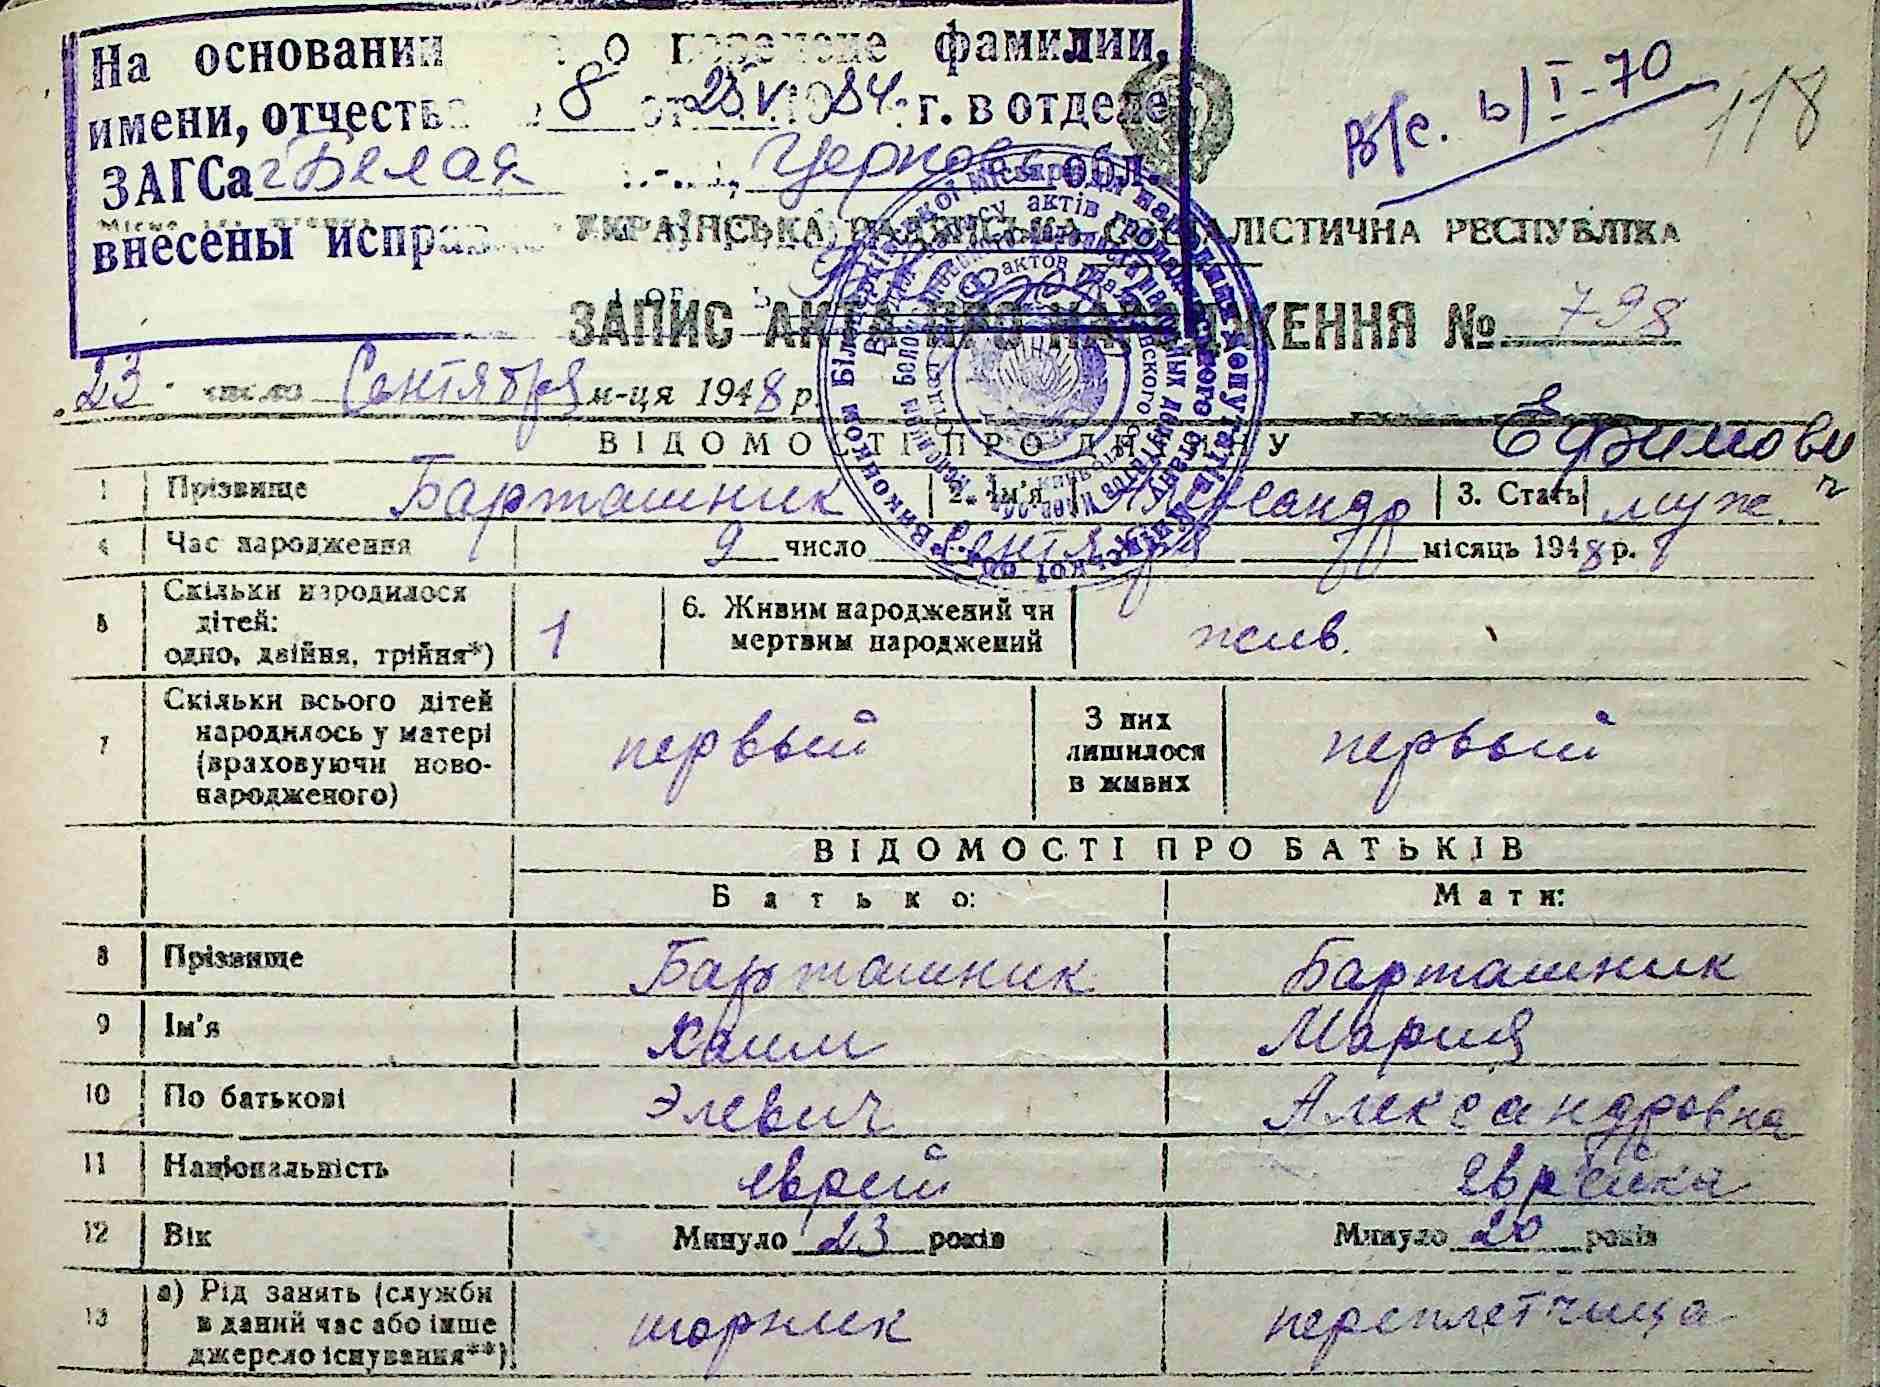 На основании о перемене фамилии,
имени, отчества 8 от 25 VI 1984 г. в отделе
ЗАГСа г Белая Церковь обл.
внесены исправ
В/с. b/I-70
118
УКРАЇНСЬКА РАДЯНСЬКА СОЦІАЛІСТИЧНА РЕСПУБЛІКА
ЗАПИС АКТА ПРО НАРОДЖЕННЯ № 798
23 число Сентября м-ця 1948 р.
ВІДОМОСТІ ПРО ДИТИНУ
Ефимович
1 Прізвище Барташник 2. Ім'я Александр 3. Стать муж.
4 Час народження 9 число сентября місяць 1948 р.
5 Скільки народилося дітей: одно, двійня, трійня*) 1 6. Живим народжений чи мертвим народжений жив.
7 Скільки всього дітей народилось у матері (враховуючи новонародженого) первый З них лишилося в живих первый
ВІДОМОСТІ ПРО БАТЬКІВ
Батько: Мати:
8 Прізвище Барташник Барташник
9 Ім'я Хаим Мария
10 По батькові Элевич Александровна
11 Національність еврей еврейка
12 Вік Минуло 23 років Минуло 20 років
13 а) Рід занять (служби в даний час або інше джерело існування**) шорник переплетчица